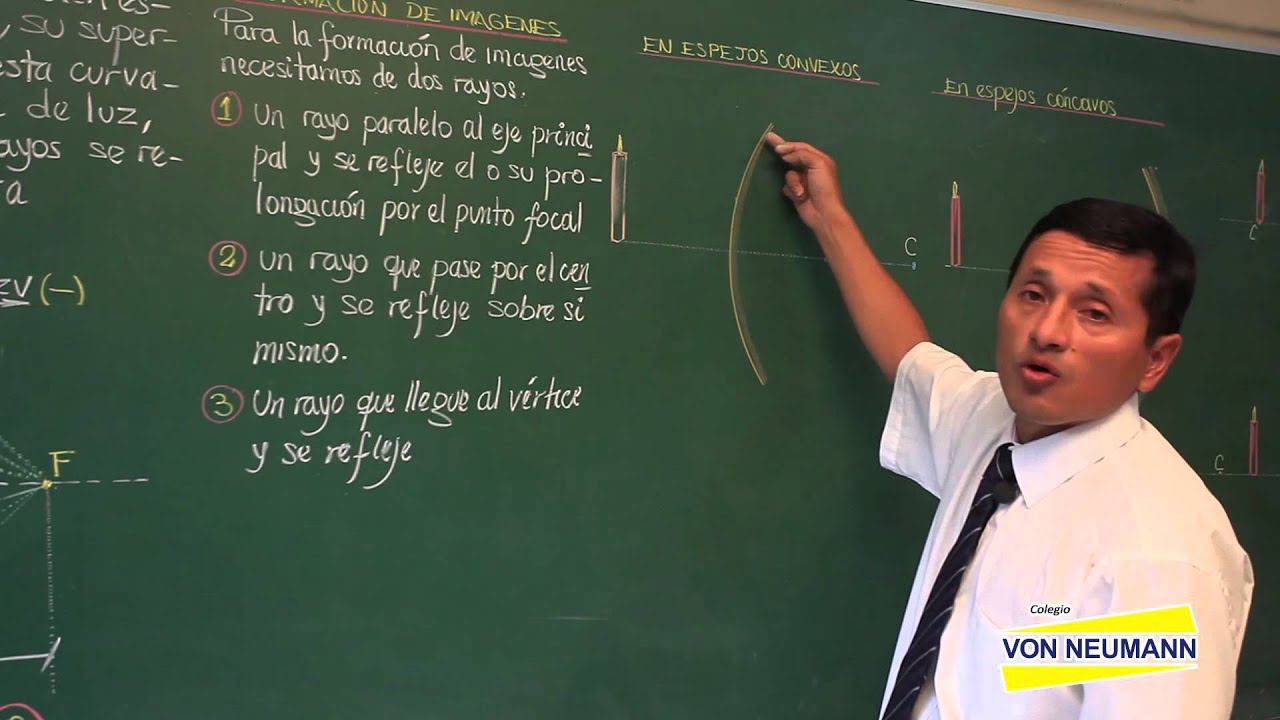 su super-
esta curva-
de luz,
rayos se re-
EV (-)
F
FORMACIÓN DE IMAGENES
Para la formación de imagenes
necesitamos de dos rayos.
1 Un rayo paralelo al eje princi
pal y se refleje el o su pro-
longación por el punto focal
2 un rayo que pase por el cen
tro y se refleje sobre si
mismo.
3 Un rayo que llegue al vértice
y se refleje
EN ESPEJOS CONVEXOS
C
En espejos cóncavos
C
C
Colegio
VON NEUMANN